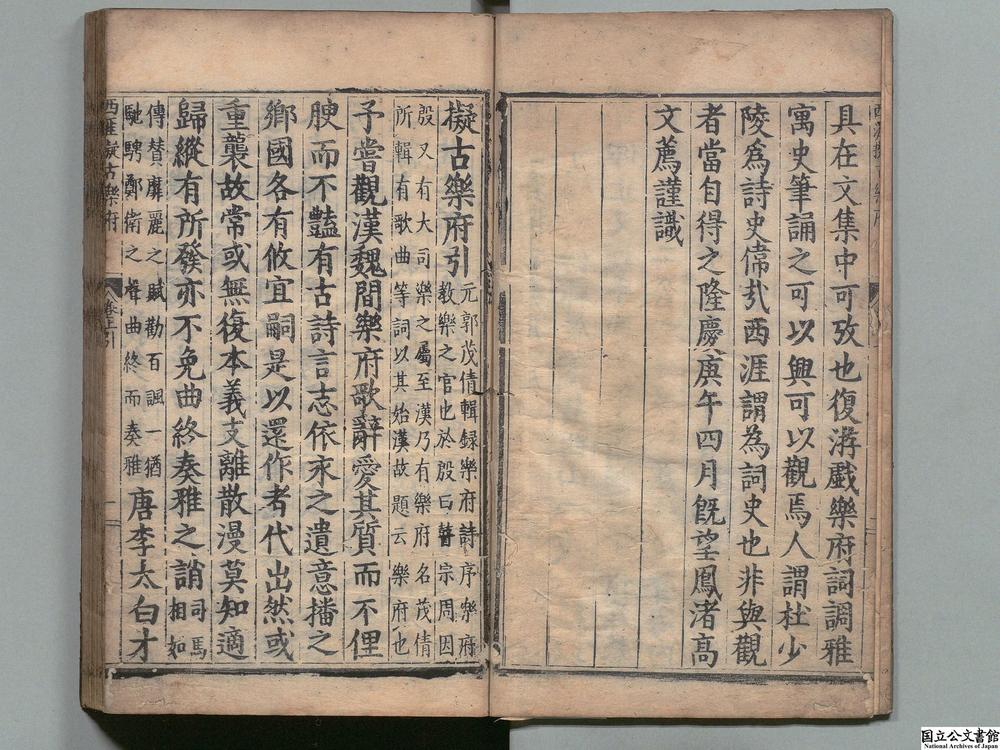 具在文集中可攷也復游戲樂府詞調雅
寓史筆誦之可以興可以觀焉人謂杜少
陵爲詩史偉㢤西涯謂為詞史也非與觀
者當自得之隆慶庚午四月旣望鳳渚高
文薦謹識
擬古樂府引
元郭茂倩輯録樂府詩序樂府
教樂之官也於殷曰瞽宗周因
殷又有大司樂之屬至漢乃有樂府名茂倩
所輯有歌曲等詞以其始漢故題云樂府也
予嘗觀漢魏間樂府歌辭愛其質而不俚
腴而不豔有古詩言志依永之遺意播之
鄉國各有攸宜嗣是以還作者代出然或
重襲故常或無復本義支離散漫莫知適
歸縱有所發亦不免曲終奏雅之誚
司馬
相如
傳賛靡麗之賦勸百諷一猶
馳騁鄭衛之聲曲終而奏雅
唐李太白才
西涯擬古樂府
卷上引
国立公文書館
National Archives of Japan